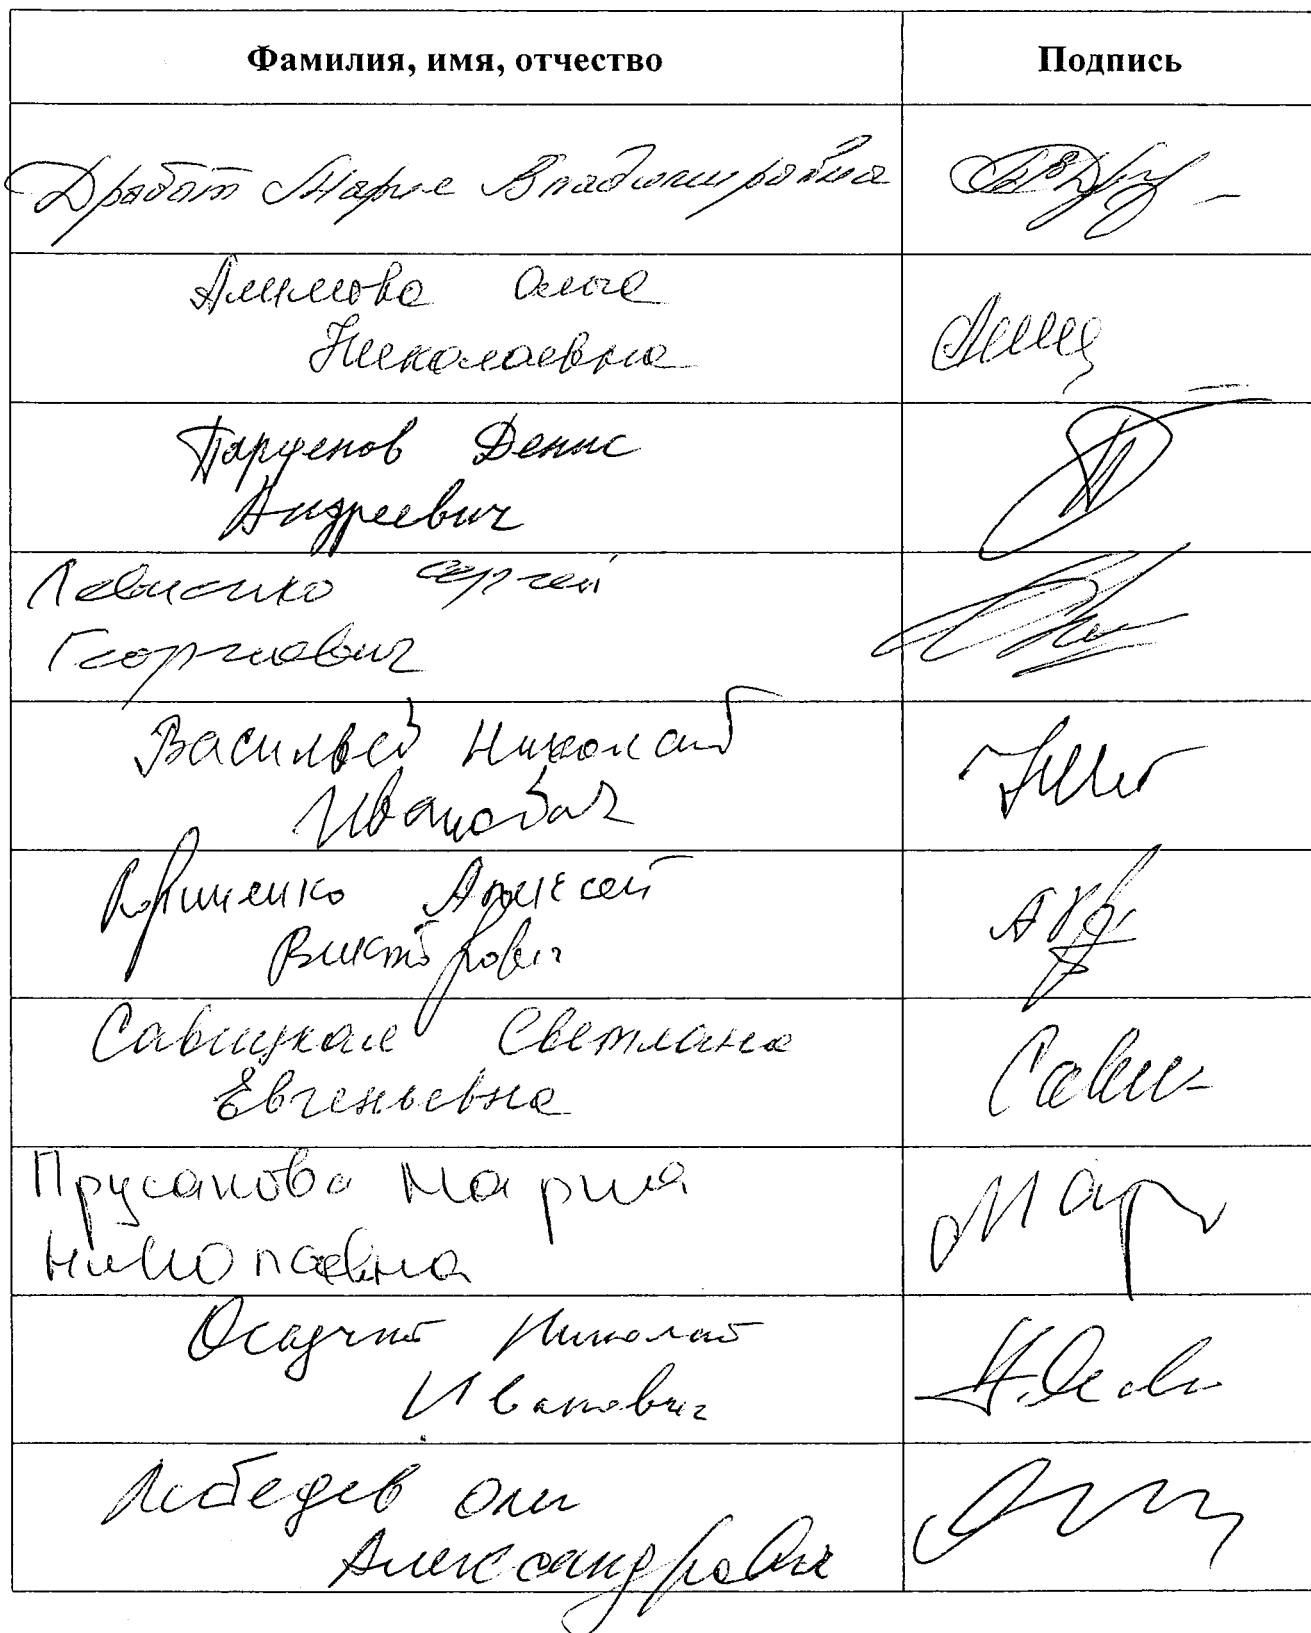 Фамилия, имя, отчество Подпись
Дработ Мария Владимировна
Алимова Ольга
Николаевна
Парфенов Денис
Андреевич
Левченко Сергей
Георгиевич
Васильев Николай
Иванович
Корниенко Алексей
Викторович
Савицкая Светлана
Евгеньевна
Прусакова Мария
Николаевна
Осадчий Николай
Иванович
Лебедев Олег
Александрович